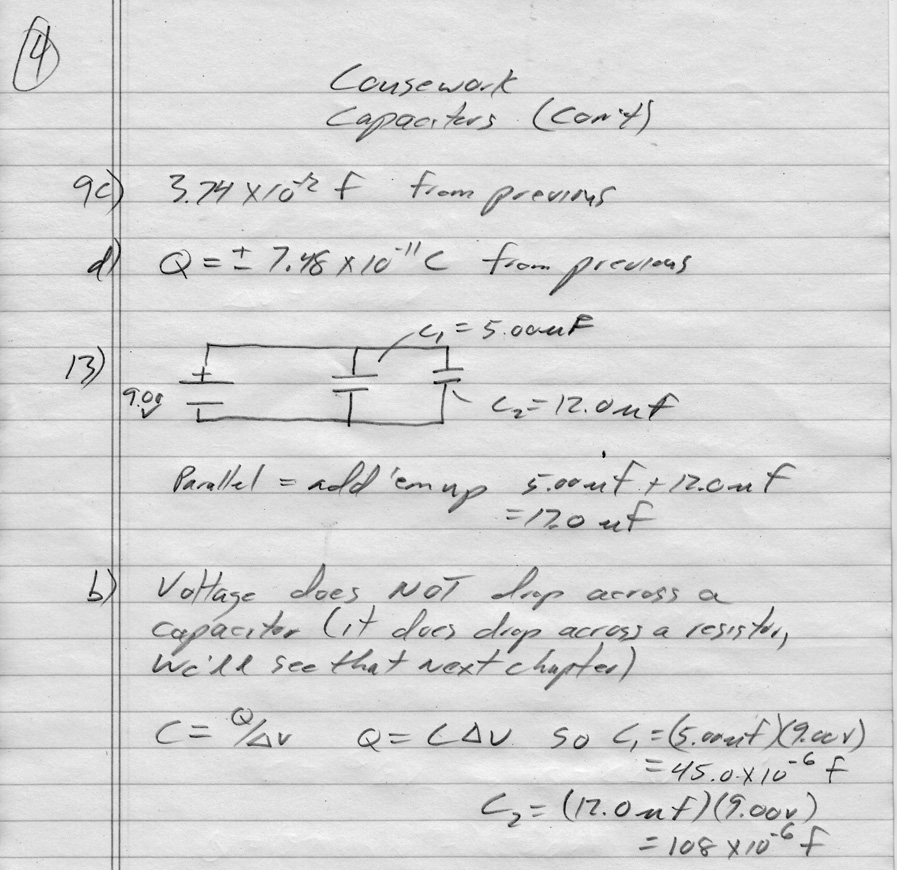 4
Cousework
Capacitors (con't)
9c) 3.74 x 10⁻¹² F from previous
d) Q = ± 7.48 x 10⁻¹¹ C from previous
C₁ = 5.00uF
13)
9.00
V
C₂ = 12.0uF
Parallel = add 'em up 5.00uF + 12.0uF
= 17.0 uF
b) Voltage does NOT drop across a
capacitor (it does drop across a resistor,
we'll see that next chapter)
C = Q/ΔV Q = CΔV so C₁ = (5.00uF)(9.00V)
= 45.0 x 10⁻⁶ F
C₂ = (12.0uF)(9.00V)
= 108 x 10⁻⁶ F